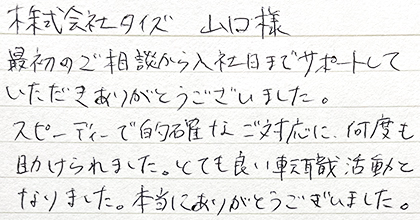 株式会社タイズ　山口様
最初のご相談から入社日までサポートして
いただきありがとうございました。
スピーディーで的確なご対応に、何度も
助けられました。とても良い転職活動と
なりました。本当にありがとうございました。